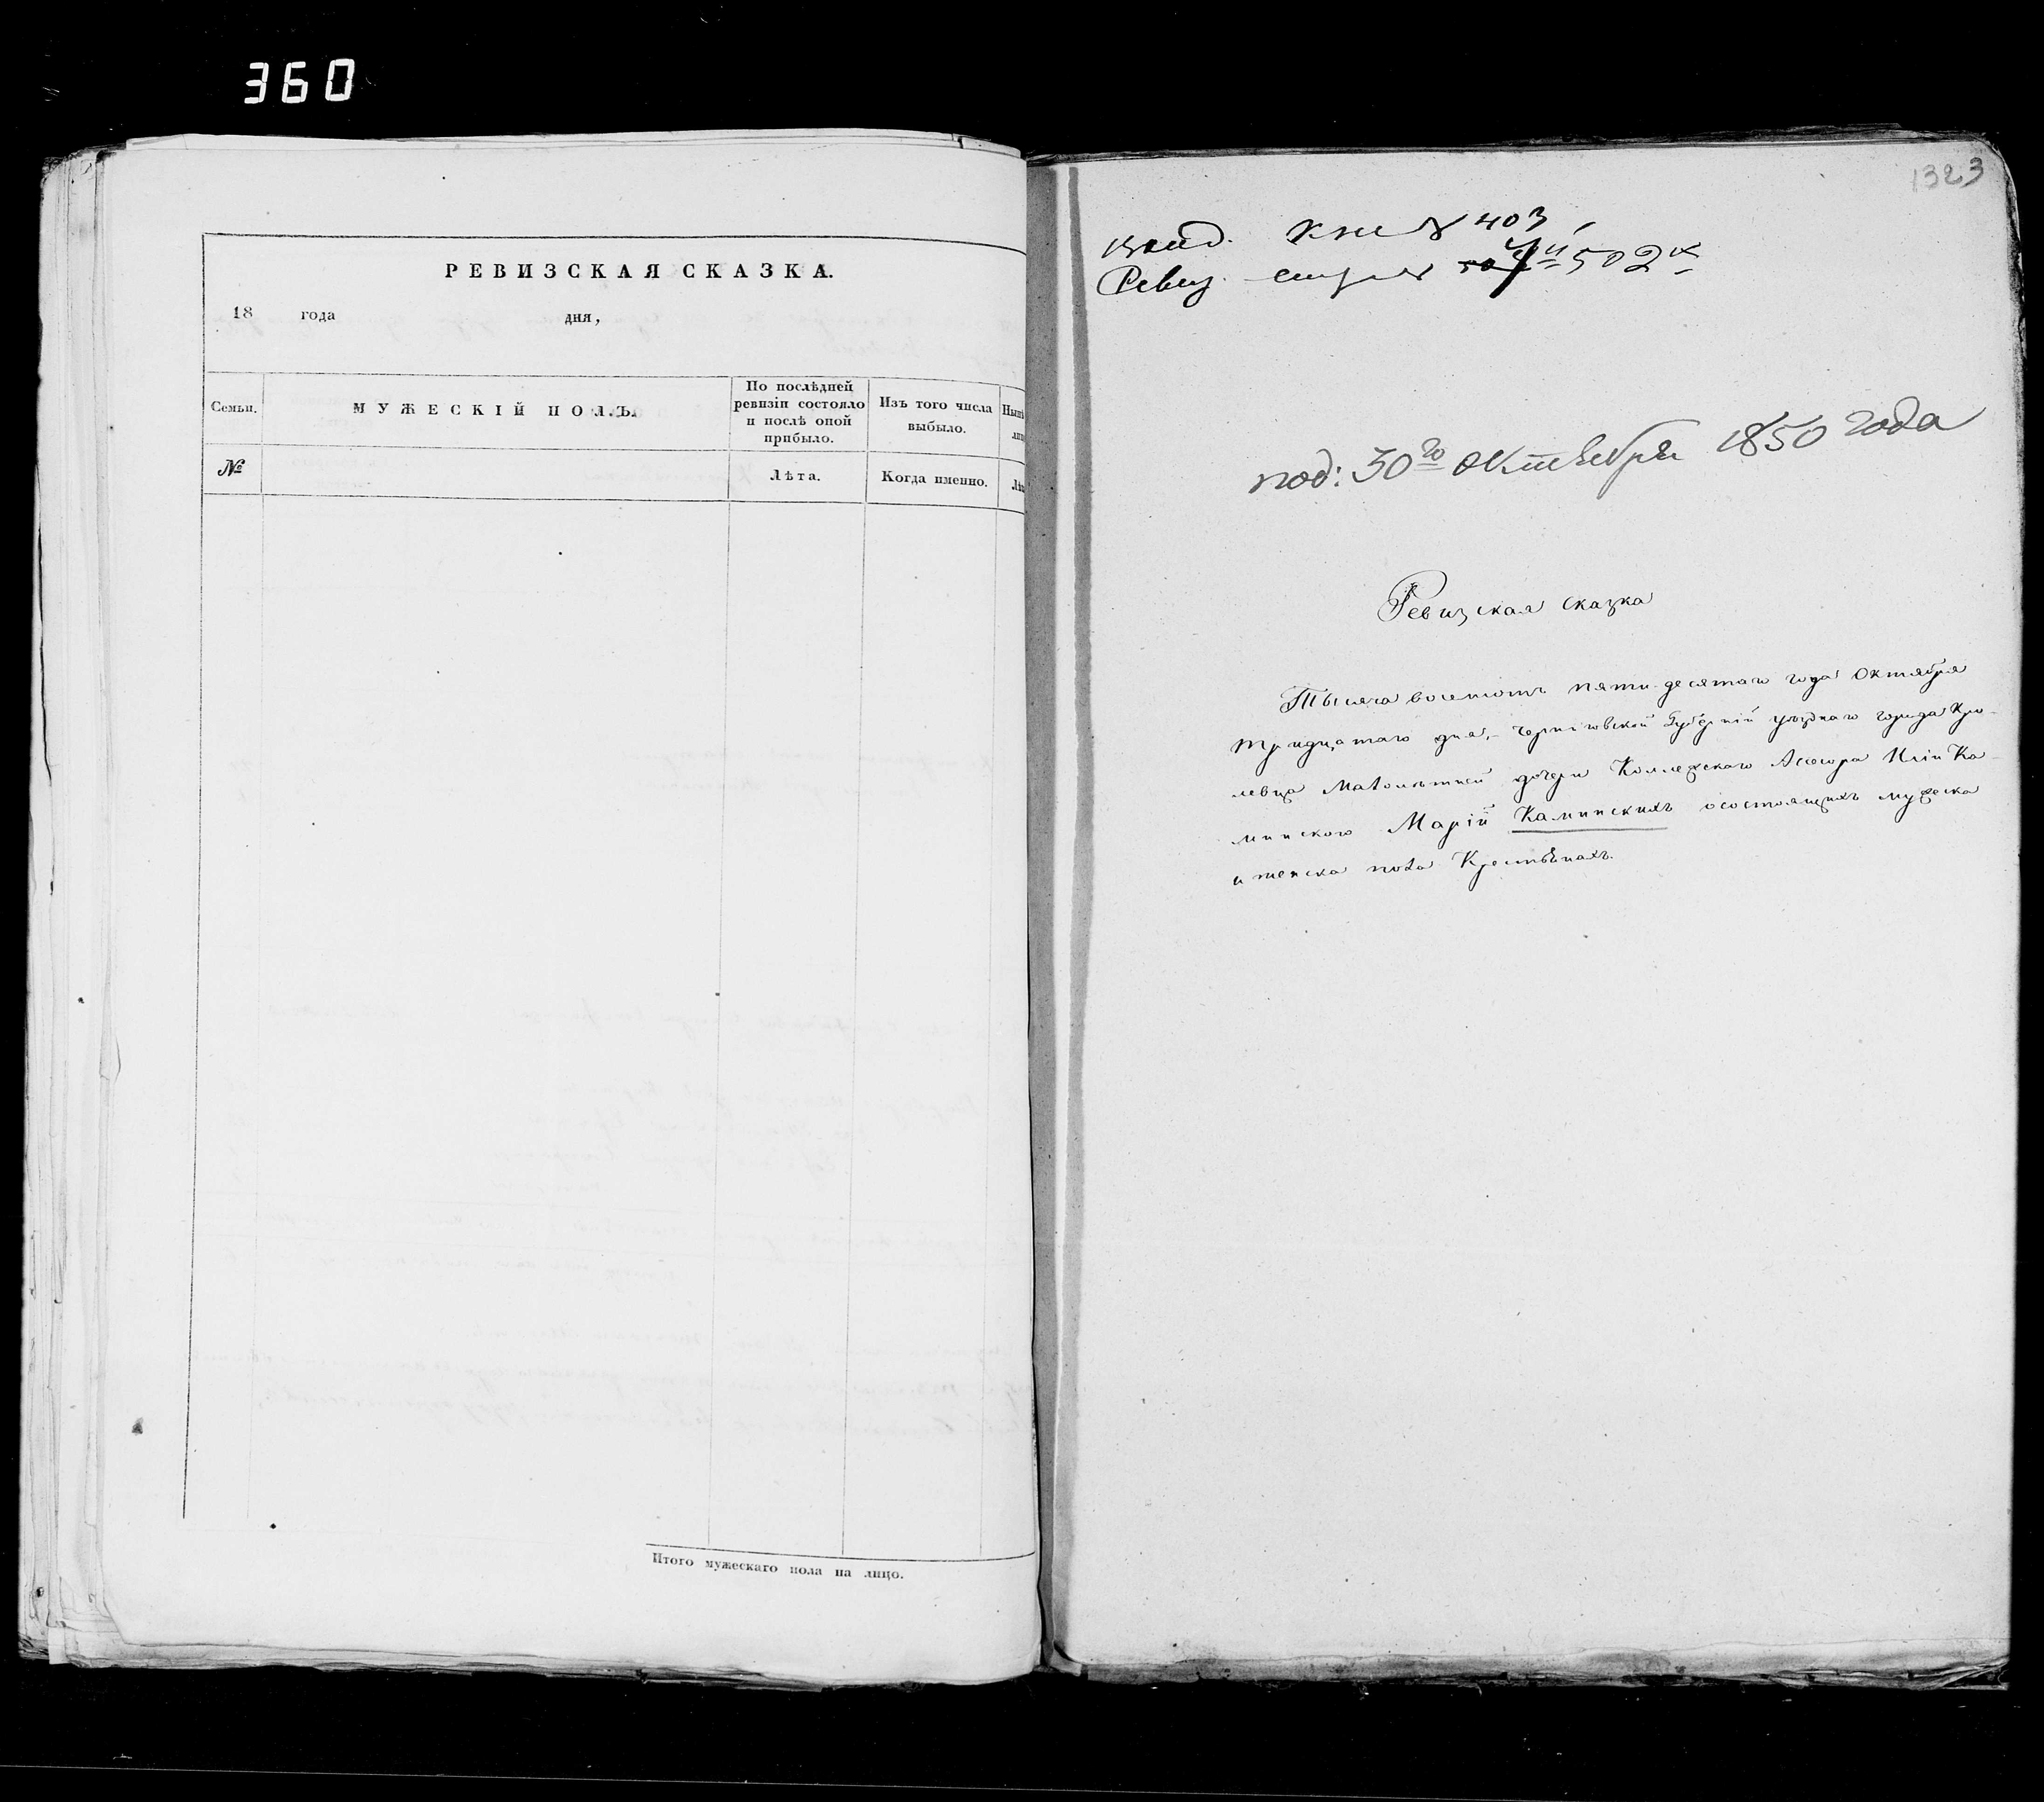 360
РЕВИЗСКАЯ СКАЗКА.
18 года дня,
Семьи.
МУЖЕСКІЙ ПОЛЪ.
По послѣдней
ревизіи состояло
и послѣ оной
прибыло.
Изъ того числа
выбыло.
№
Лѣта.
Когда именно.
Итого мужескаго пола на лицо.
1323
403
Ревиз. 502
под: 30го октября 1850 года
Ревизская сказка
Тысяча восемсотъ пяти десятаго года Октября
тридцатаго дня, Черниговской Губерніи уѣзднаго города Кро-
левца Малолѣтней дочери Коллежскаго Асесора Ка-
минского Маріи Каминскихъ осостоящихъ мужеска
и женска пола Крестьянахъ.